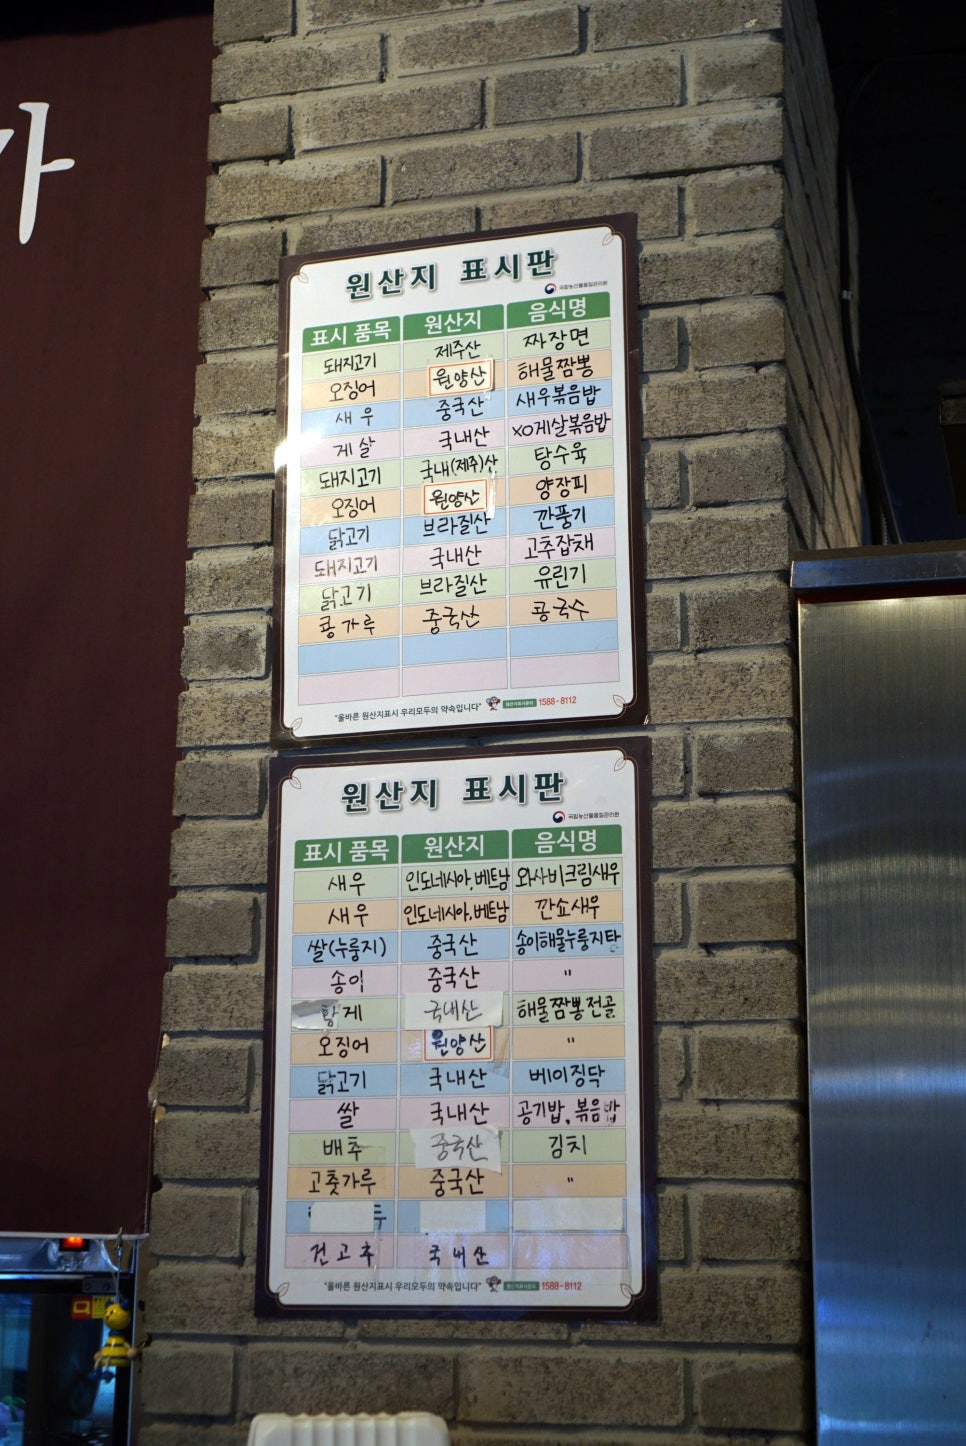 가
원산지 표시판
국립농산물품질관리원
표시 품목 원산지 음식명
돼지고기 제주산 짜장면
오징어 원양산 해물짬뽕
새우 중국산 새우볶음밥
게살 국내산 XO게살볶음밥
돼지고기 국내(제주)산 탕수육
오징어 원양산 양장피
닭고기 브라질산 깐풍기
돼지고기 국내산 고추잡채
닭고기 브라질산 유린기
콩가루 중국산 콩국수
"올바른 원산지표시 우리모두의 약속입니다" 원산지표시문의 1588-8112
원산지 표시판
국립농산물품질관리원
표시 품목 원산지 음식명
새우 인도네시아,베트남 와사비크림새우
새우 인도네시아,베트남 깐쇼새우
쌀(누룽지) 중국산 송이해물누룽지탕
송이 중국산 "
황게 국내산 해물짬뽕전골
오징어 원양산 "
닭고기 국내산 베이징닥
쌀 국내산 공기밥, 볶음밥
배추 중국산 김치
고춧가루 중국산 "
건고추 국내산
"올바른 원산지표시 우리모두의 약속입니다" 원산지표시문의 1588-8112